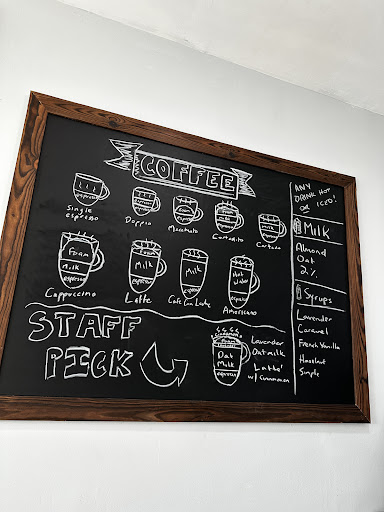 COFFEE
Single
espresso
Doppio
Macchiato
Cortadito
Cortado
Foam
Milk
espresso
Cappuccino
Foam
Milk
espresso
Latte
Milk
espresso
Hot
Water
espresso
Americano
STAFF
PICK
Cinnamon
Foam
Oat
Milk
espresso
Lavender
Oatmilk
Latte
w/ Cinnamon
ANY
DRINK HOT
OR ICED!
Milk
Almond
Oat
2%
Syrups
Lavender
Caramel
French Vanilla
Hazelnut
Simple